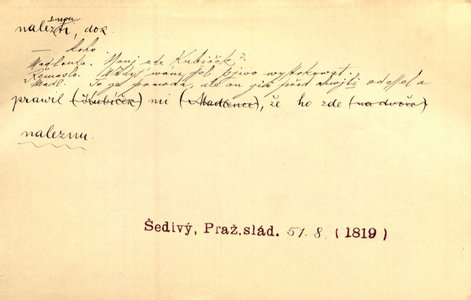 nalezti, dok.
— koho
Madlenka. Není zde Kubíček?
Řemeslo. Vždyť šel pivo
Madl. To je pravda, ale on již před chvílí odešel a
pravil (Kubíček) mi (Madlence), že ho zde (na dvoře)
naleznu.
Šedivý, Praž.slád. 51.8. (1819)